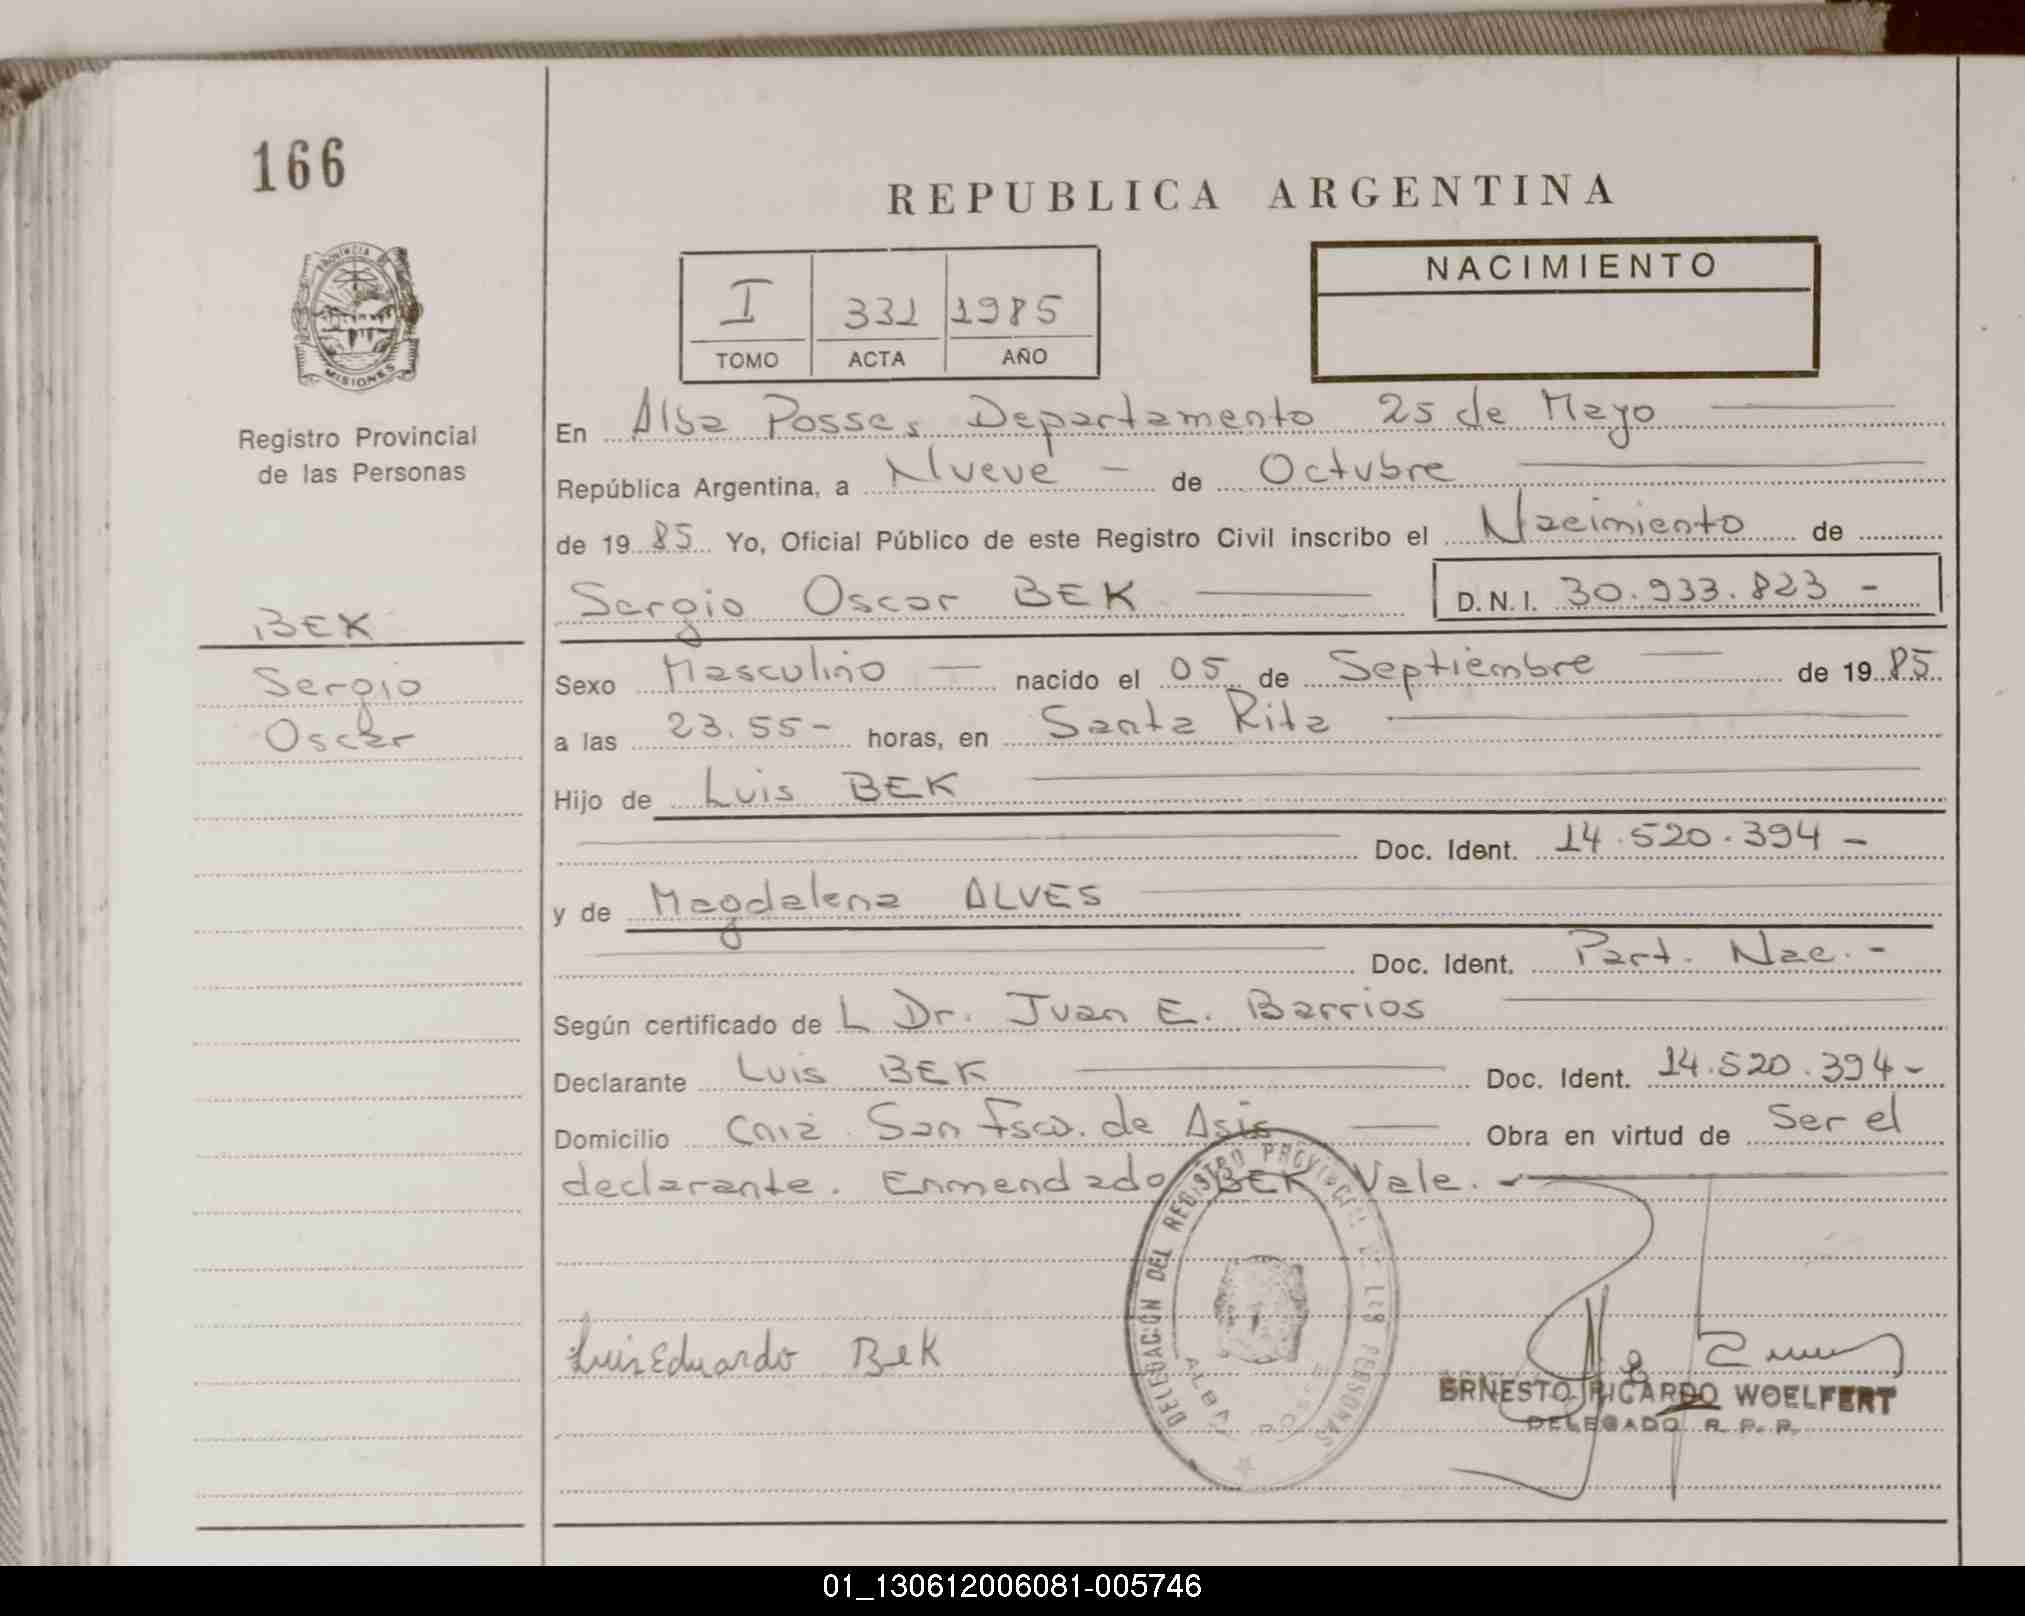 166
REPUBLICA ARGENTINA
PROVINCIA DE
MISIONES
Registro Provincial
de las Personas
I 331 1985
TOMO ACTA AÑO
NACIMIENTO
En Alba Posse, Departamento 25 de Mayo
República Argentina, a Nueve - de Octubre
de 1985 Yo, Oficial Público de este Registro Civil inscribo el Nacimiento de
Sergio Oscar BEK D.N.I. 30.933.823 -
BEK
Sergio
Oscar
Sexo Masculino nacido el 05 de Septiembre de 1985
a las 23.55- horas, en Santa Rita
Hijo de Luis BEK
Doc. Ident. 14.520.394 -
y de Magdalena ALVES
Doc. Ident. Part. Nac. -
Según certificado de L Dr. Juan E. Barrios
Declarante Luis BEK Doc. Ident. 14.520.394-
Domicilio San Fsco. de Asis Obra en virtud de Ser el
declarante. Enmendado BEK Vale. -
DELEGACION DEL REGISTRO PROVINCIAL DE LAS PERSONAS
ALBA POSSE
Luis Eduardo Bek
ERNESTO RICARDO WOELFERT
DELEGADO R. P. P.
01_130612006081-005746